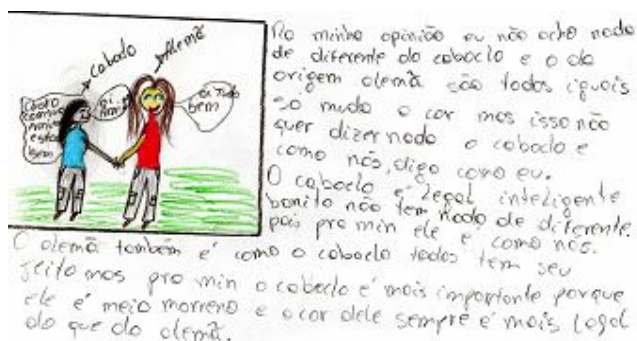 caboclo
Alemã
oi
amiga
oi tudo
bem
Na minha opinião eu não acho nada
de diferente do caboclo e o da
origem alemã são todos iguais
so muda a cor mas isso não
quer dizer nada o caboclo e
como nós, digo como eu.
O caboclo é legal inteligente
bonito não tem nada de diferente
pois pra min ele é como nós.
O alemã também é como o caboclo todos tem seu
jeito mas pra min o caboclo é mais importante porque
ele é meio morreno e a cor dele sempre é mais legal
do que da alemã.